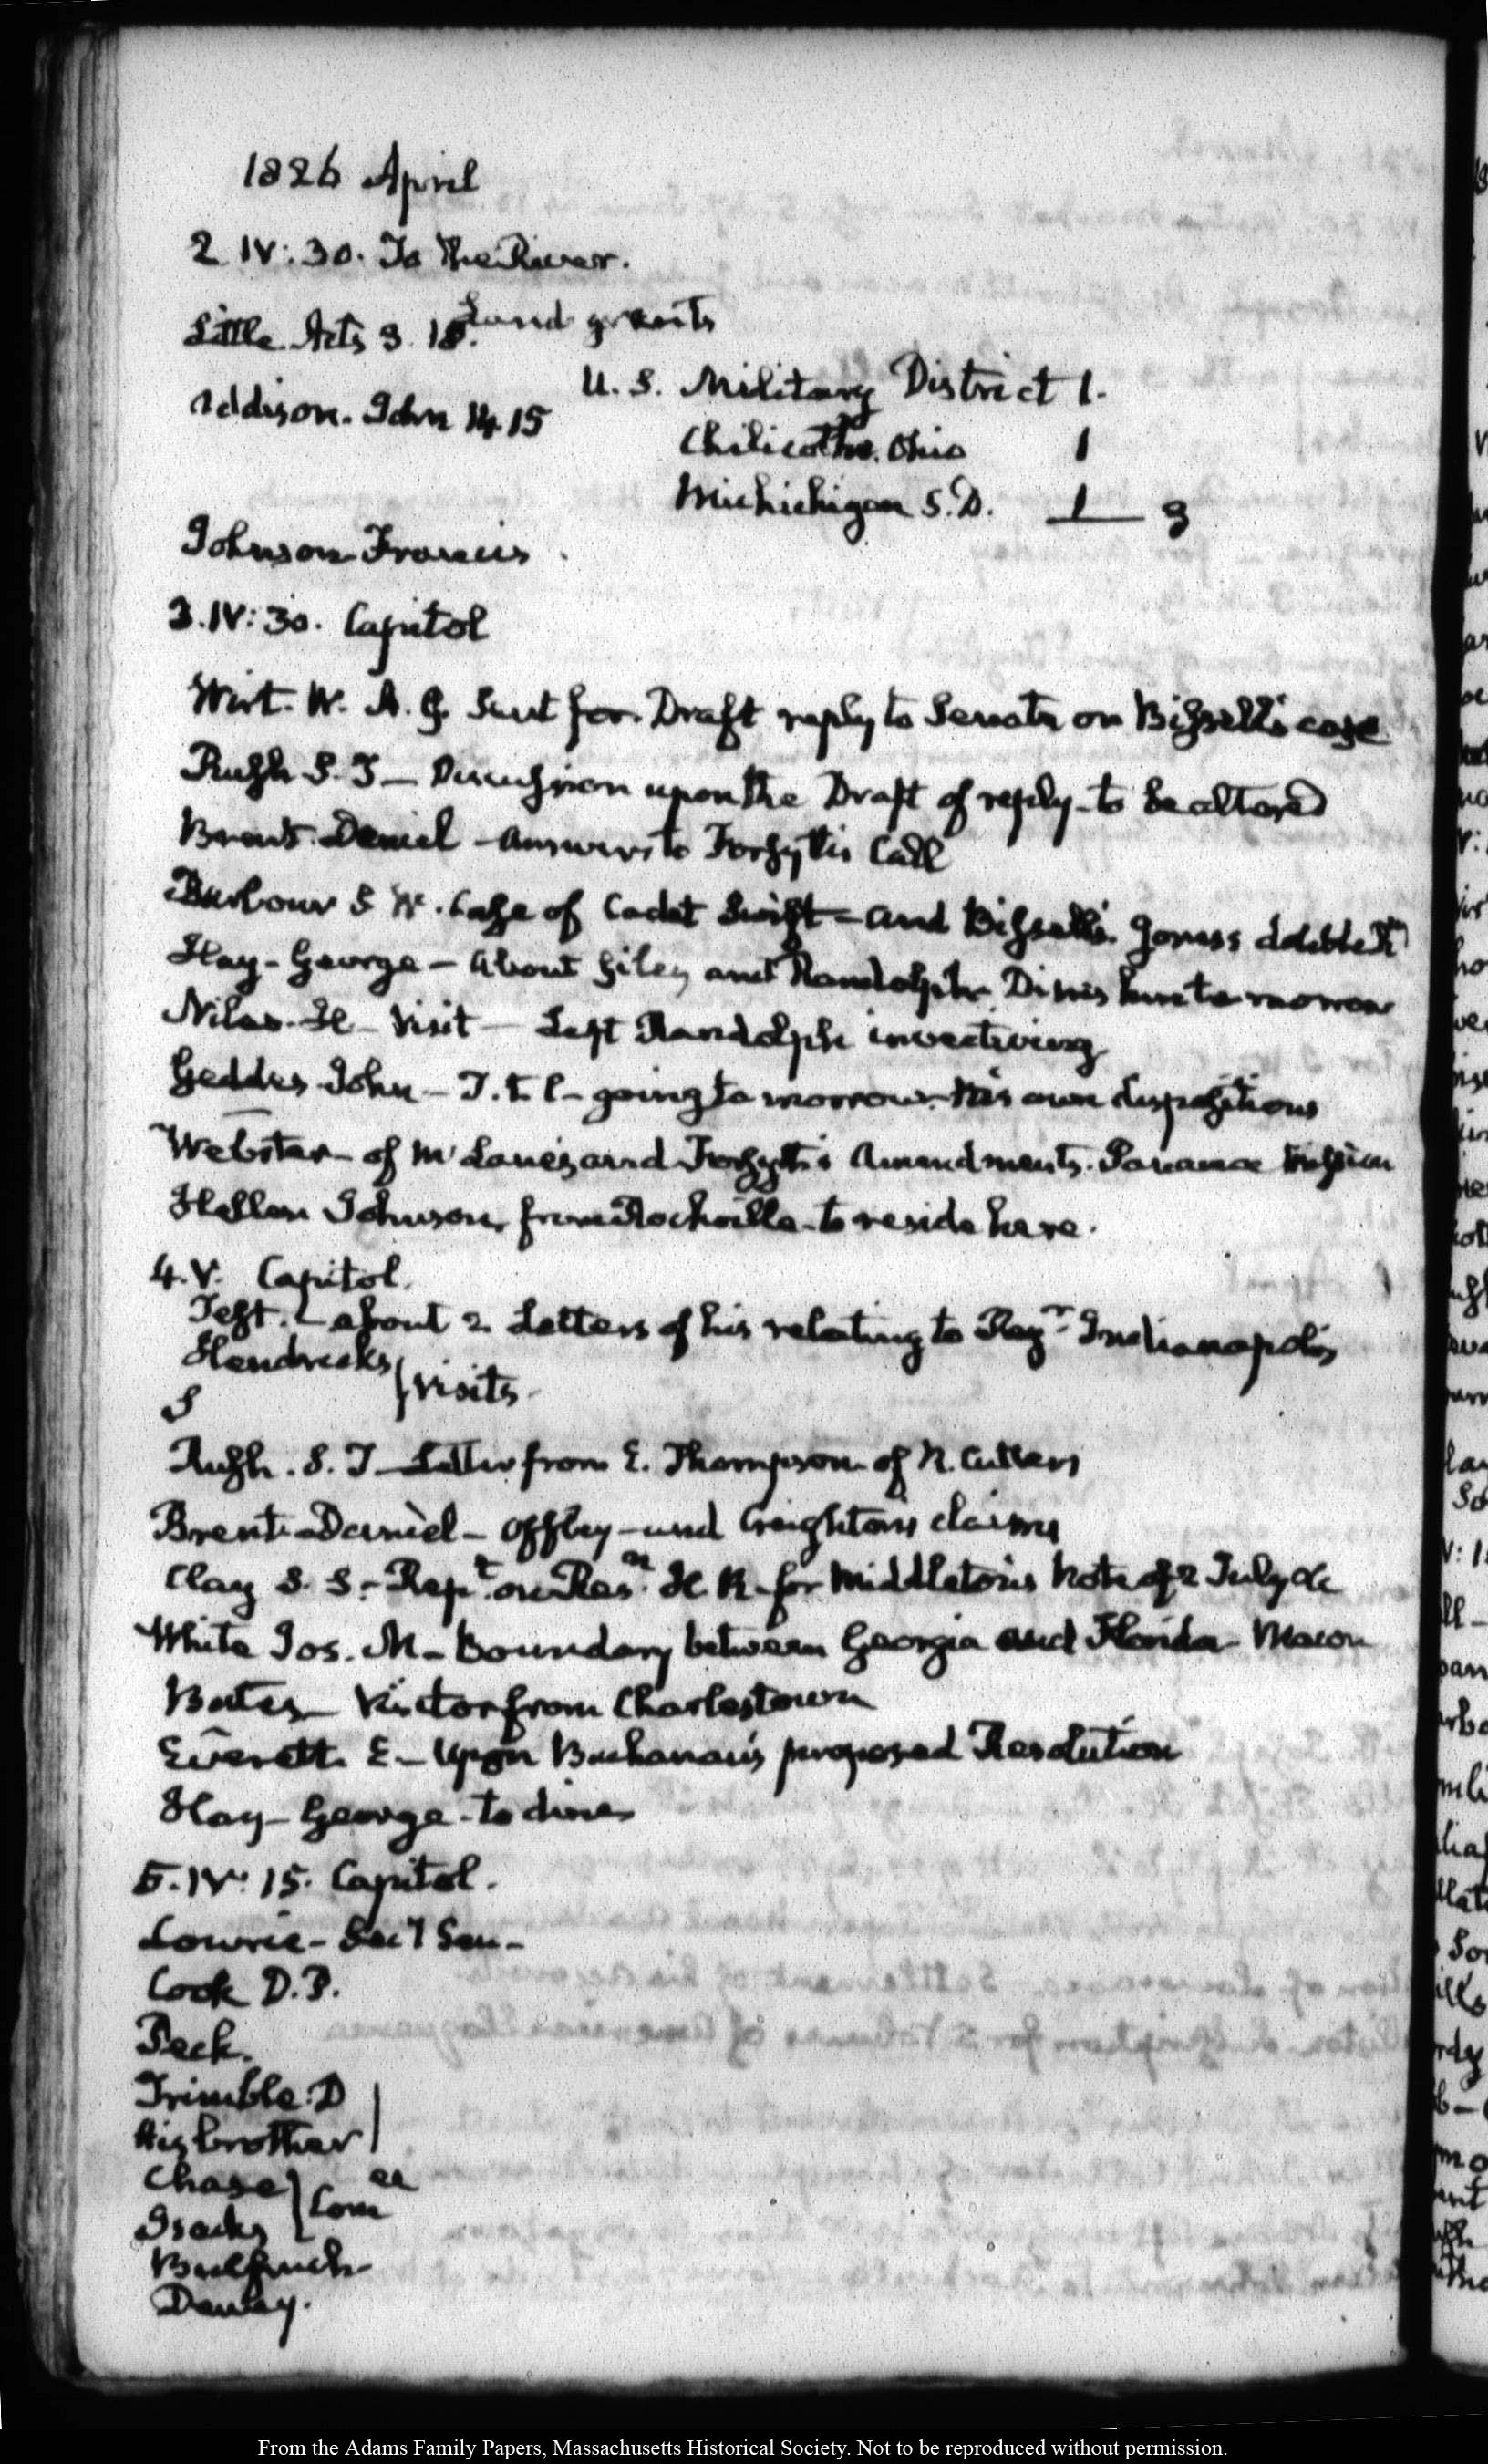 1826 April
2 IV: 30. To the River.
Little Acts 3. 18. Land grants
U. S. Military District 1.
Addison. John 14. 15
Chilicothe. Ohio 1
Michichigan S. D. 1 3
Johnson Francis
3. IV: 30. Capitol
Wirt. W. A. G. Sent for. Draft reply to Senate on Bissell's case
Rush S. T — Discussion upon the Draft of reply to be altered
Brent. Daniel — Answers to Forsyth's Call
Barbour S W. Case of Cadet Swift — and Bissell's.
Hay — George — About Giles and Randolph to morrow
Niles. H — Visit — Left Randolph invectiving
Geddes John — T. t l — going to morrow. his own dispositions
Webster — of McLane's and Forsyth's Amendments. Panama Mission
Hellen Johnson, from Rockville — to reside here.
4. V. Capitol.
Test. — about 2 Letters of his relating to Indianapolis
Hendricks
S } visits
Rush. S. T — Letter from E. Thompson of N. Cutters
Brent — Daniel — Offley — and Creighton's claims
Clay S. S. — Rept. on Resn. H. R. for Middleton's Note of 2 July &c
White Jos. M — Boundary between Georgia and Florida — Macon
Bates — Visitor from Charlestown
Everett. E — Upon Buchanan's proposed Resolution
Hay — George — to dine
5. IV: 15. Capitol.
Lowrie — Secy Sen —
Cook D. P.
Peck.
Trimble. D
His brother
Chase
Isacks } Comee
Bulfinch
Dewey.
From the Adams Family Papers, Massachusetts Historical Society. Not to be reproduced without permission.